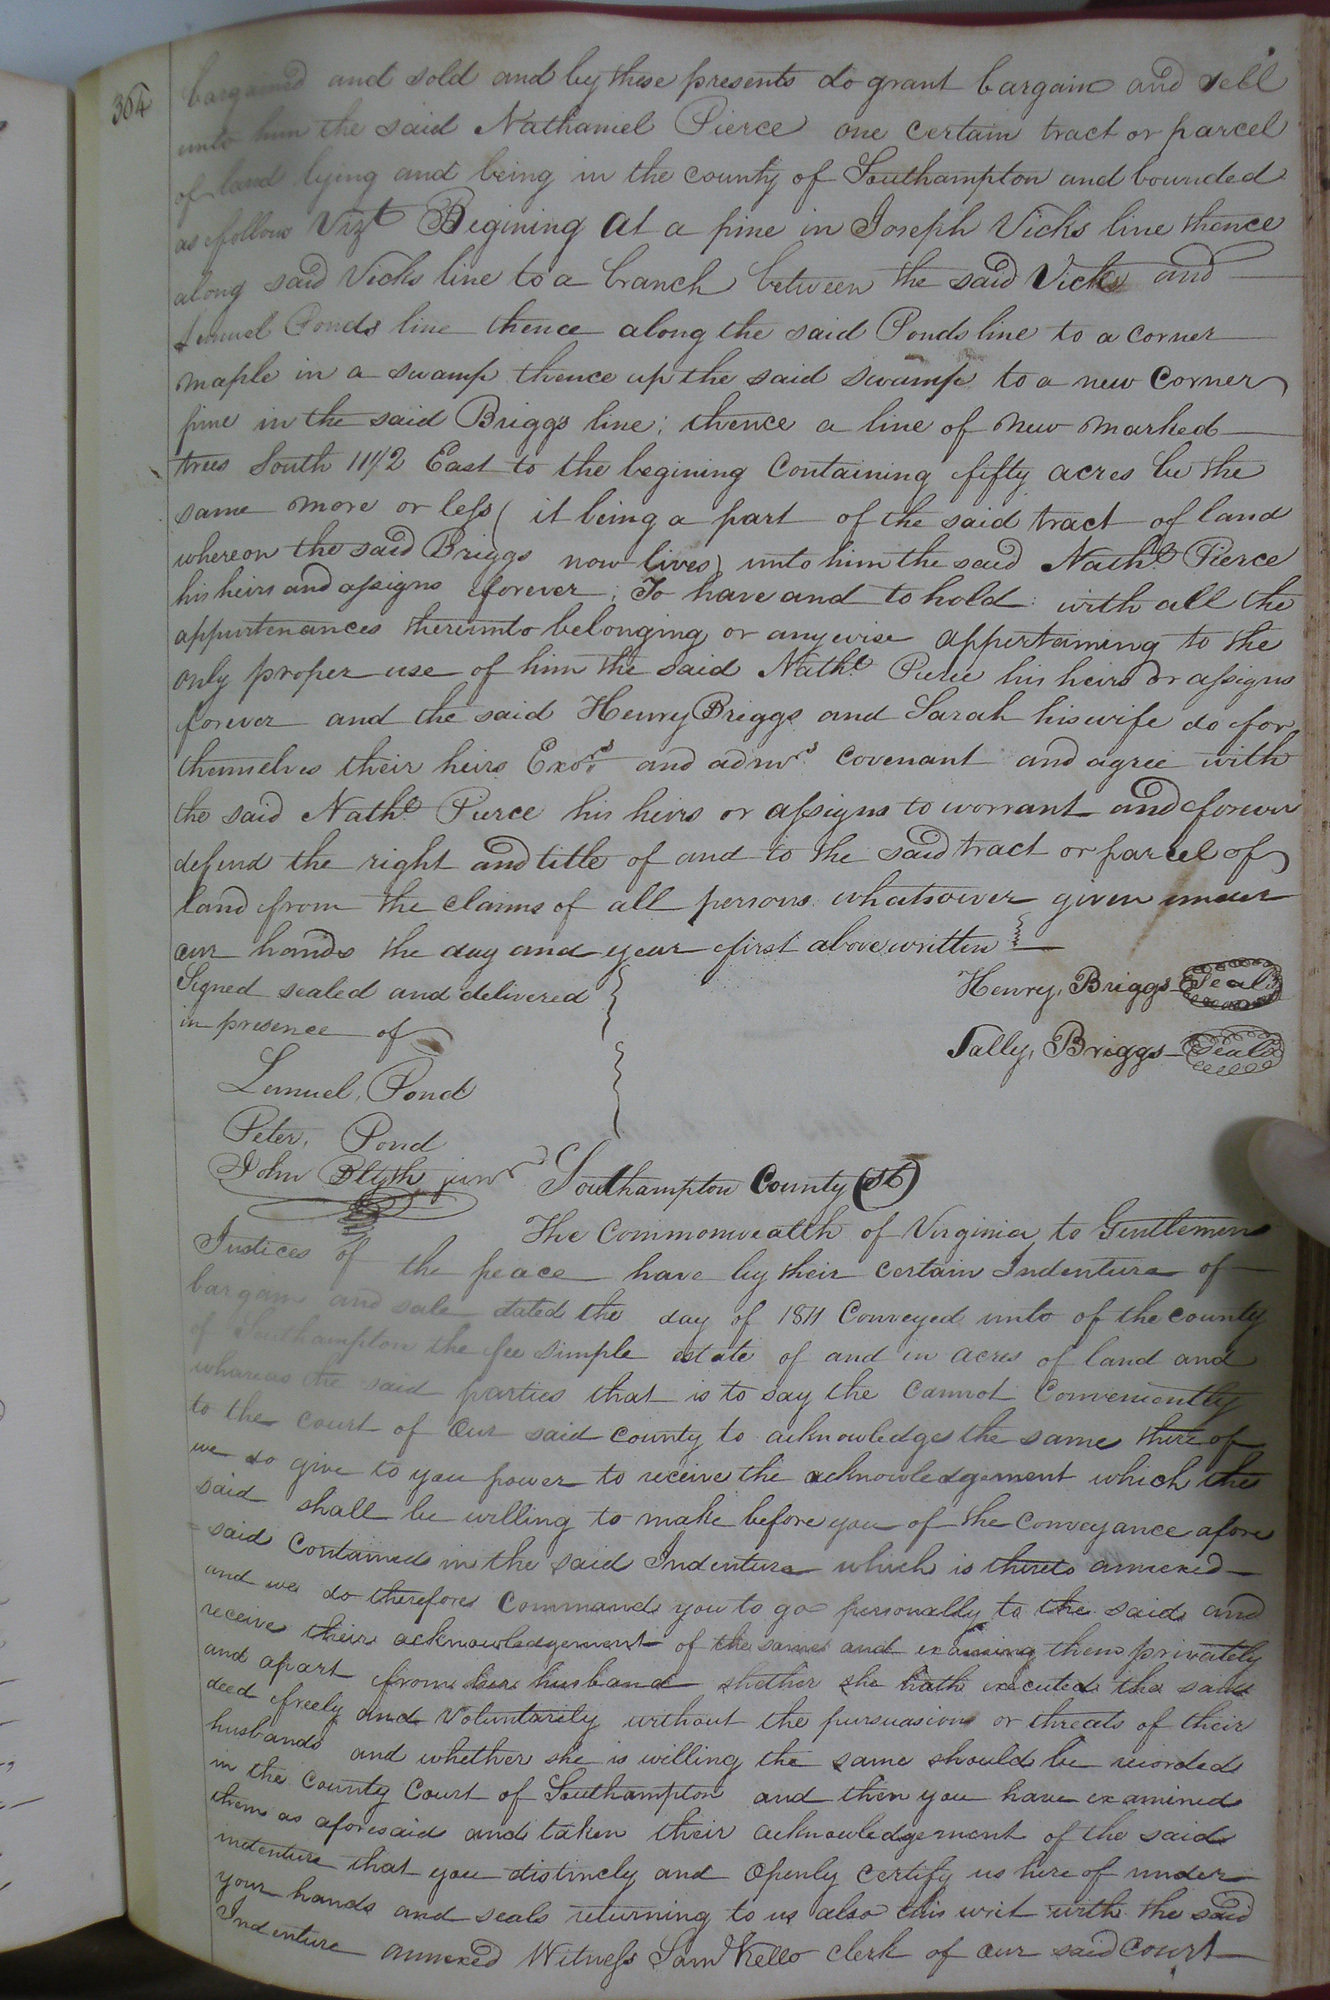 364
bargained and sold and by these presents do grant bargain and sell
unto him the said Nathaniel Pierce one certain tract or parcel
of land lying and being in the county of Southampton and bounded
as follows Vizt Begining at a pine in Joseph Vicks line thence
along said Vicks line to a branch between the said Vicks and
Lemuel Ponds line thence along the said Ponds line to a corner
maple in a swamp thence up the said swamp to a new corner
pine in the said Briggs line; thence a line of new marked
trees South 11 1/2 East to the begining containing fifty acres be the
same more or less (it being a part of the said tract of land
whereon the said Briggs now lives) unto him the said Nathl. Pierce
his heirs and assigns forever; To have and to hold with all the
appurtenances thereunto belonging or anywise appertaining to the
only proper use of him the said Nathl. Pierce his heirs or assigns
forever and the said Henry Briggs and Sarah his wife do for
themselves their heirs Exors. and admrs. covenant and agree with
the said Nathl. Pierce his heirs or assigns to worrant and forever
defend the right and title of and to the said tract or parcel of
land from the claims of all persons whatsoever given under
our hands the day and year first above written
Signed sealed and delivered
in presence of
Henry, Briggs Seal
Sally, Briggs Seal
Lemuel, Pond
Peter, Pond
John Blyth junr
Southampton County (St)
The Commonwealth of Virginia to Gentlemen
Justices of the peace have by their certain Indenture of
bargain and sale dated the day of 1811 Conveyed unto of the county
of Southampton the fee simple estate of and in acres of land and
whareas the said parties that is to say the cannot conveniently
to the court of our said county to acknowledge the same there of
we do give to you power to receive the acknowledgement which the
said shall be willing to make before you of the conveyance afore
= said contained in the said Indenture which is thereto annexed
and we do therefore command you to go personally to the said and
receive their acknowledgement of the same and examing them privately
and apart from her husband shether she hath executed the said
deed freely and Voluntarily without the pursuasions or threats of their
husbands and whether she is willing the same should be recorded
in the county Court of Southampton and then you have examined
them as aforesaid and taken their acknowledgement of the said
indenture that you distincly and openly certify us here of under
your hands and seals returning to us also this writ with the said
Indenture annexed Witness Saml Kello clerk of our said court